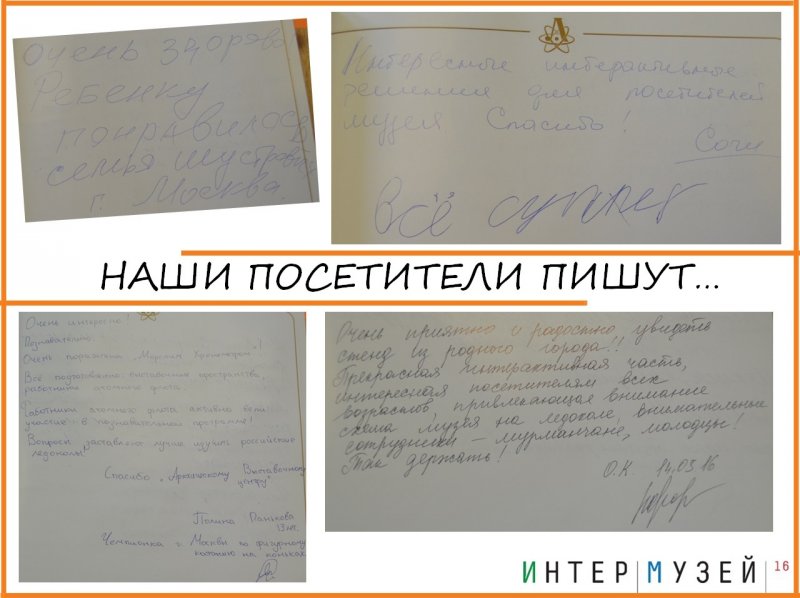 Очень здорово
Ребенку
понравилось
семья Шустровых
г. Москва.
Интересные интерактивные
решения для посетителей
музея Спасибо!
Сочи
Всё супер
НАШИ ПОСЕТИТЕЛИ ПИШУТ...
Очень интересно!
Познавательно.
Очень поразила "Морским Хронометром"!
Всё подготовлено: выставочное пространство,
работники атомного флота.
Работники атомного флота активно вели
участие в познавательной программе!
Вопросы заставляют лучше изучить российские
ледоколы.
Спасибо "Арктическому Выставочному
центру"
Полина
13 лет.
Чемпионка г. Москвы по фигурному
катанию на коньках
Очень приятно и радостно увидеть
стенд из родного города!!
Прекрасная интерактивная часть,
интересная посетителям всех
возрастов, привлекающая внимание
схема музея на ледоколе, внимательные
сотрудники – мурманчане, молодцы!
Так держать!
О.К. 14.05.16
ИНТЕР|МУЗЕЙ 16